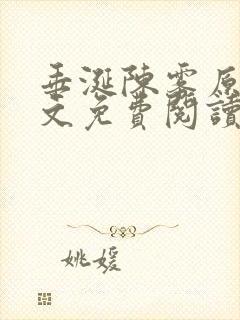 垂涎陳雾原
文免費閱讀
姚媛